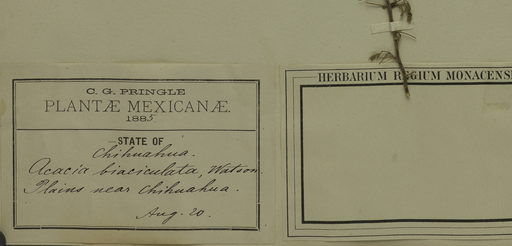 C. G. PRINGLE
PLANTÆ MEXICANÆ.
1885.
STATE OF
Chihuahua.
Acacia biaciculata, Watson.
Plains near Chihuahua.
Aug. 20.
HERBARIUM REGIUM MONACENS